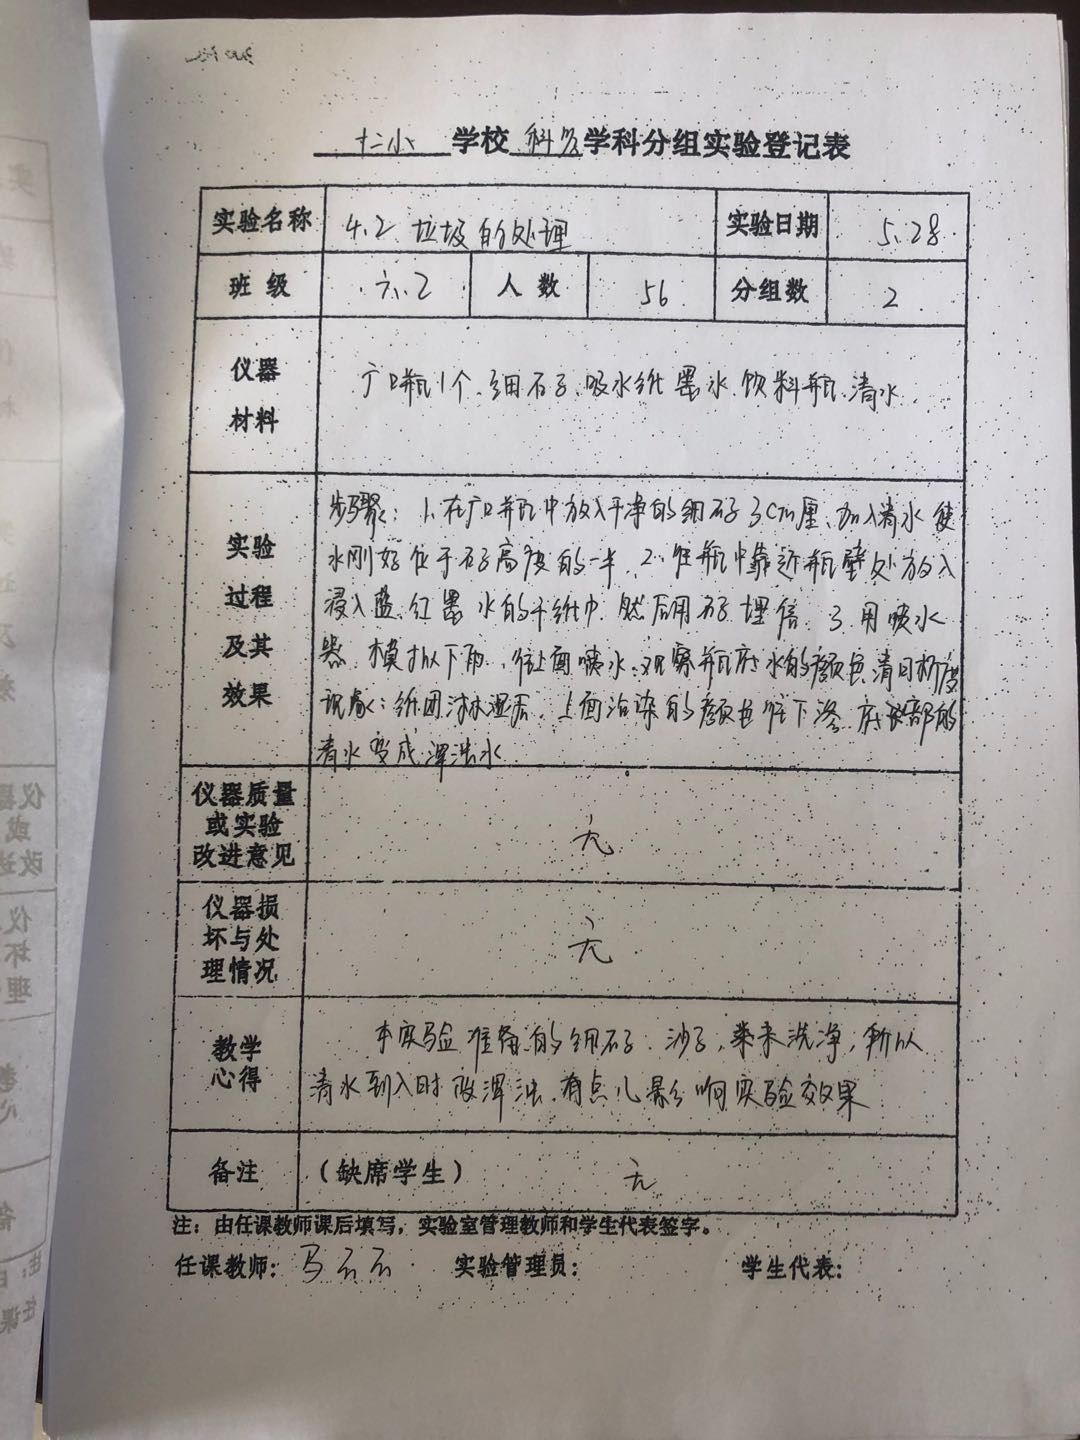 十二小 学校 科学 学科分组实验登记表
实验名称 4.2 垃圾的处理 实验日期 5.28
班级 六.2 人数 56 分组数 2
仪器
材料
广口瓶1个、细石子、吸水纸 墨水、饮料瓶、清水
实验
过程
及其
效果
步骤: 1、在广口瓶中放入干净的细石子3cm厘、加入清水 使
水刚好位于石子高度的一半、2、在瓶中靠近瓶壁处放入
浸入蓝、红墨水的干纸巾、然后用石子埋 3、用喷水
器、模拟下雨、往上面喷水、观察瓶底水的颜色、清
现象: 纸团淋湿后、上面沾染的颜色往下渗、底部的
清水变成浑浊水
仪器质量
或实验
改进意见
无
仪器损
坏与处
理情况
无
教学
心得
本实验准备的细石子、沙子,未洗净,所以
清水到入时改浑浊、有点儿影响实验效果
备注 (缺席学生) 无
注:由任课教师课后填写,实验室管理教师和学生代表签字。
任课教师: 马云云 实验管理员: 学生代表: